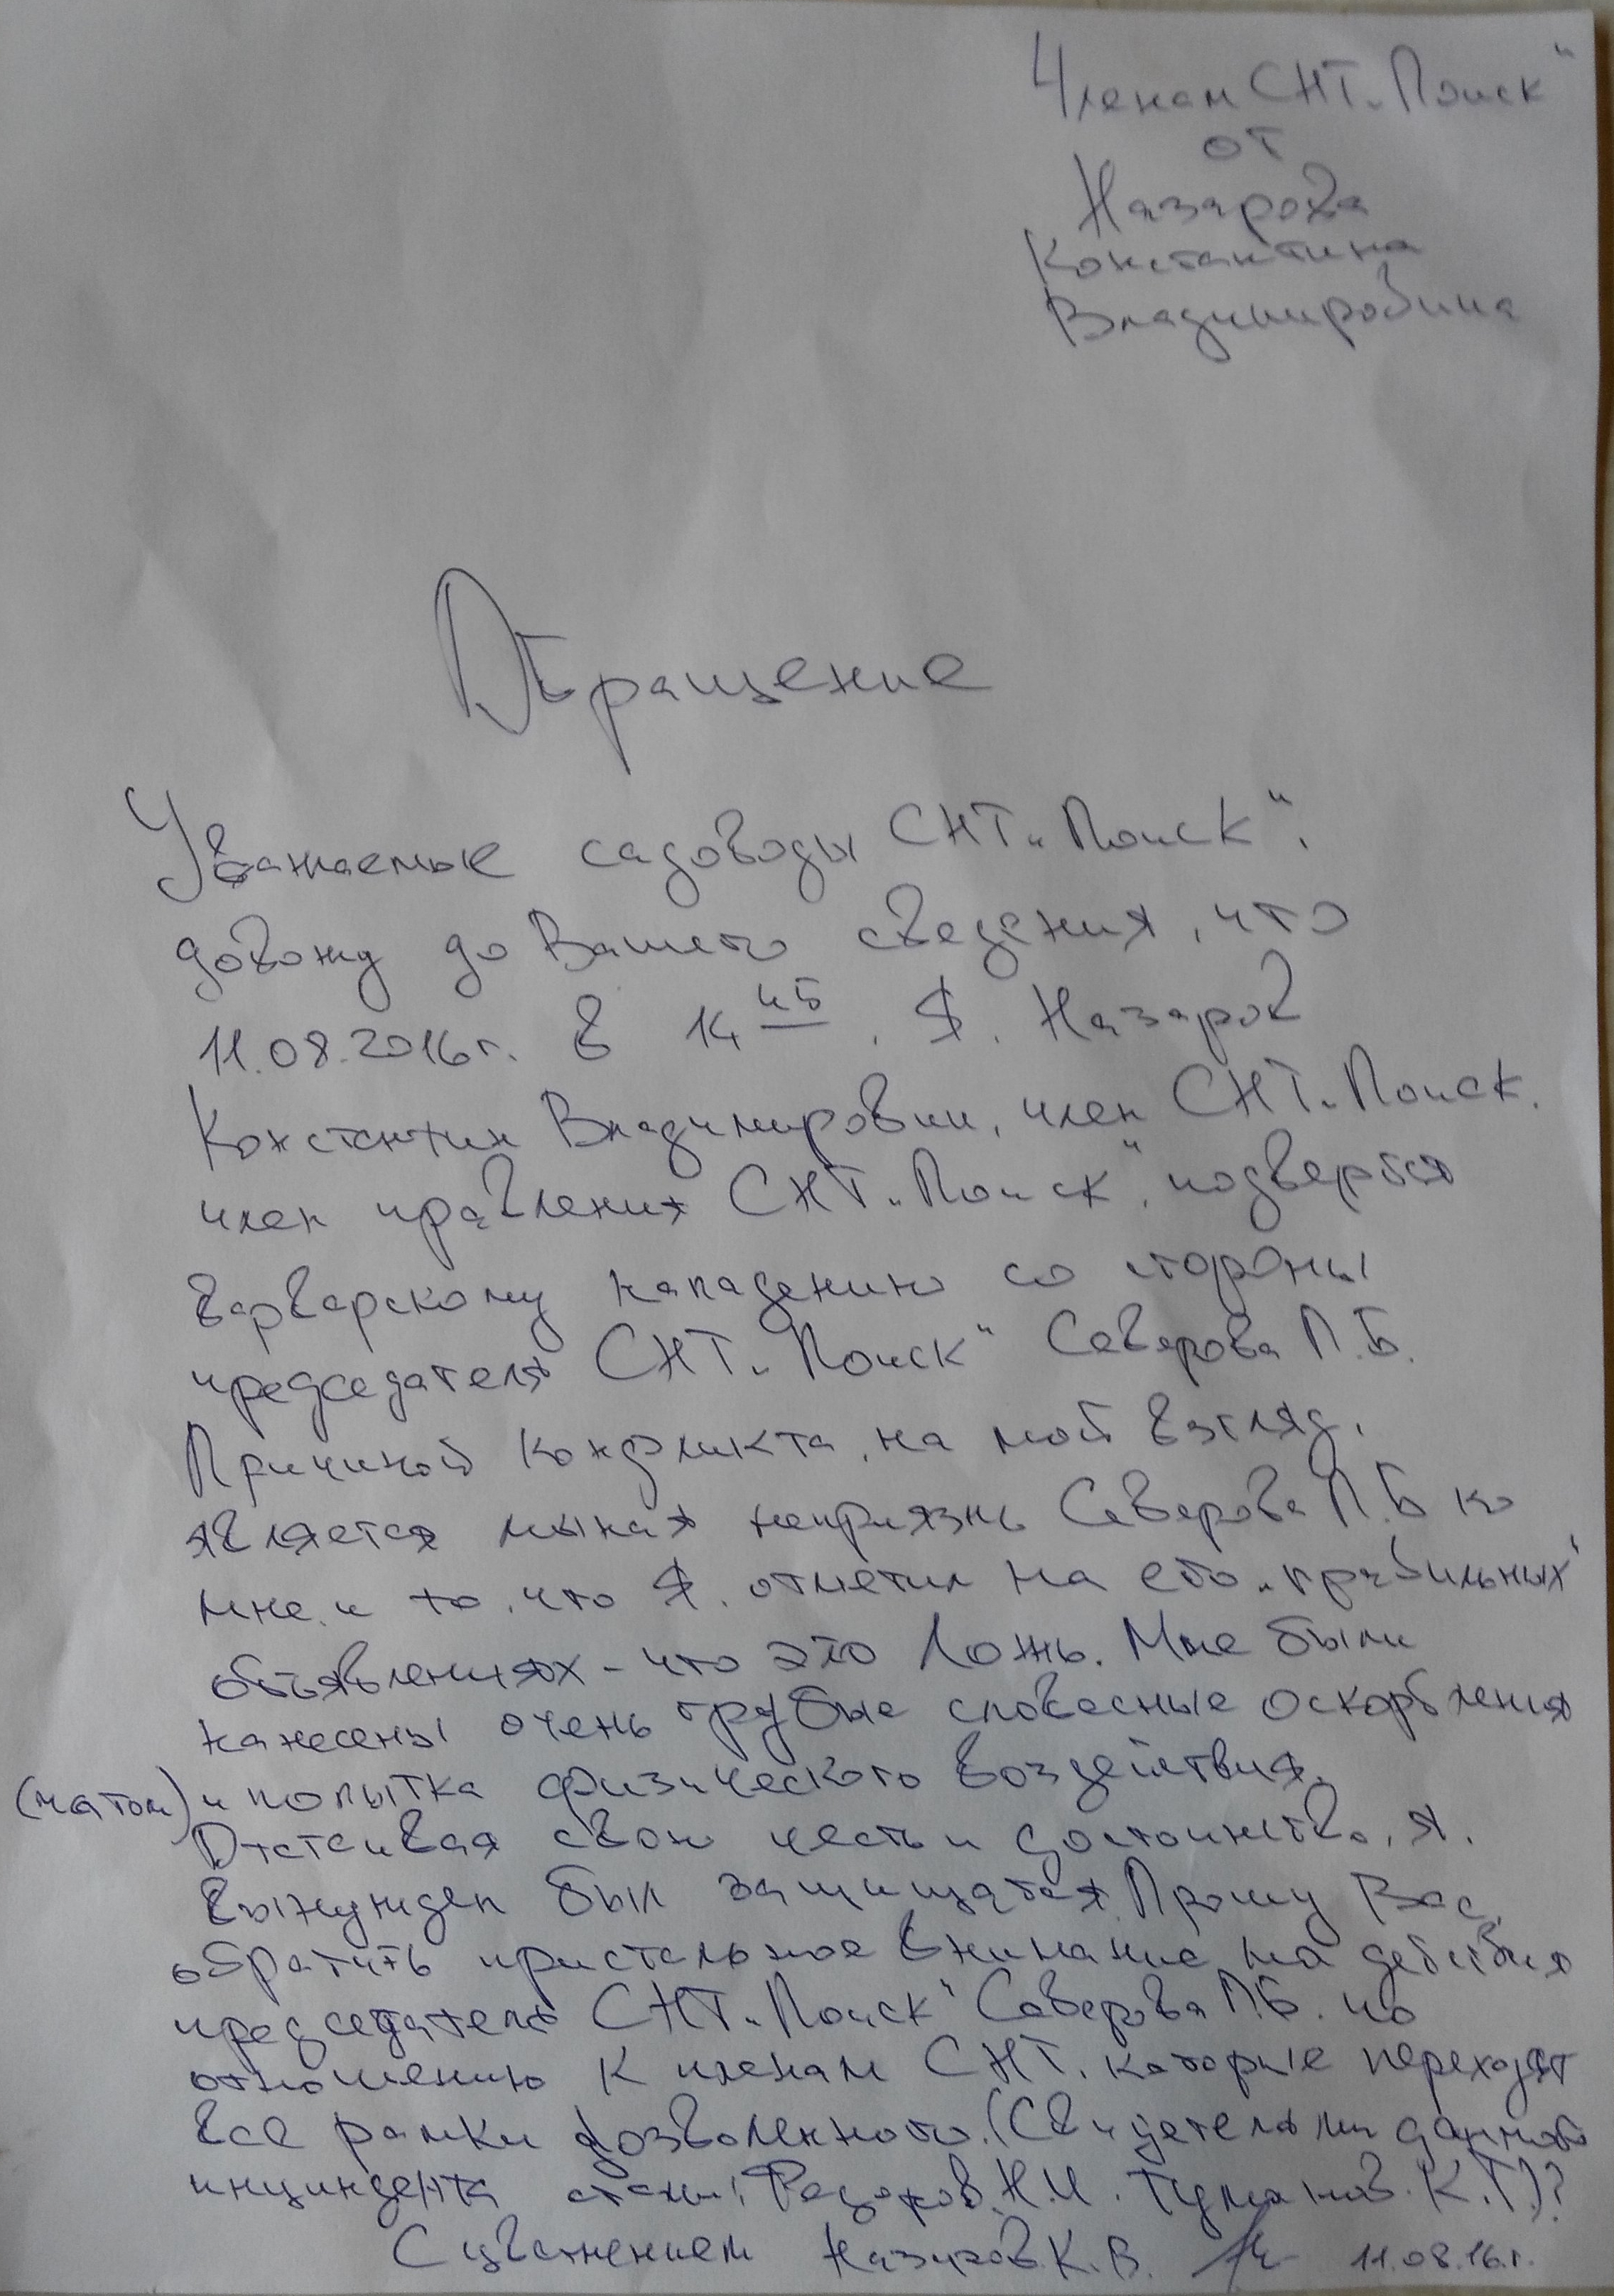 Членам СНТ „Поиск“
от
Назарова
Константина
Владимировича
Обращение
Уважаемые садоводы СНТ „Поиск“,
довожу до Вашего сведения, что
11.08.2016г. в 14 45, Я, Назаров
Константин Владимирович, член СНТ „Поиск,
член правления СНТ „Поиск“, подвергся
варварскому нападению со стороны
председателя СНТ „Поиск“ Северова П.Б.
Причиной конфликта, на мой взгляд,
является неприязнь Северова П.Б ко
мне и то, что Я, отметил на его „правильных“
объявлениях - что это Ложь. Мне были
нанесены очень грубые словесные оскорбления
(матом) и попытка физического воздействия.
Отстаивая свою честь и достоинство, я,
вынужден был защищатся. Прошу Вас,
обратить пристальное внимание на действия
председателя СНТ „Поиск“ Северова П.Б. по
отношению к членам СНТ, которые переходят
все рамки дозволенного. (Свидетелями данного
инциндента стали: Н.И. Туманов К.Г.)
С уважением Назаров К.В. 11.08.16г.